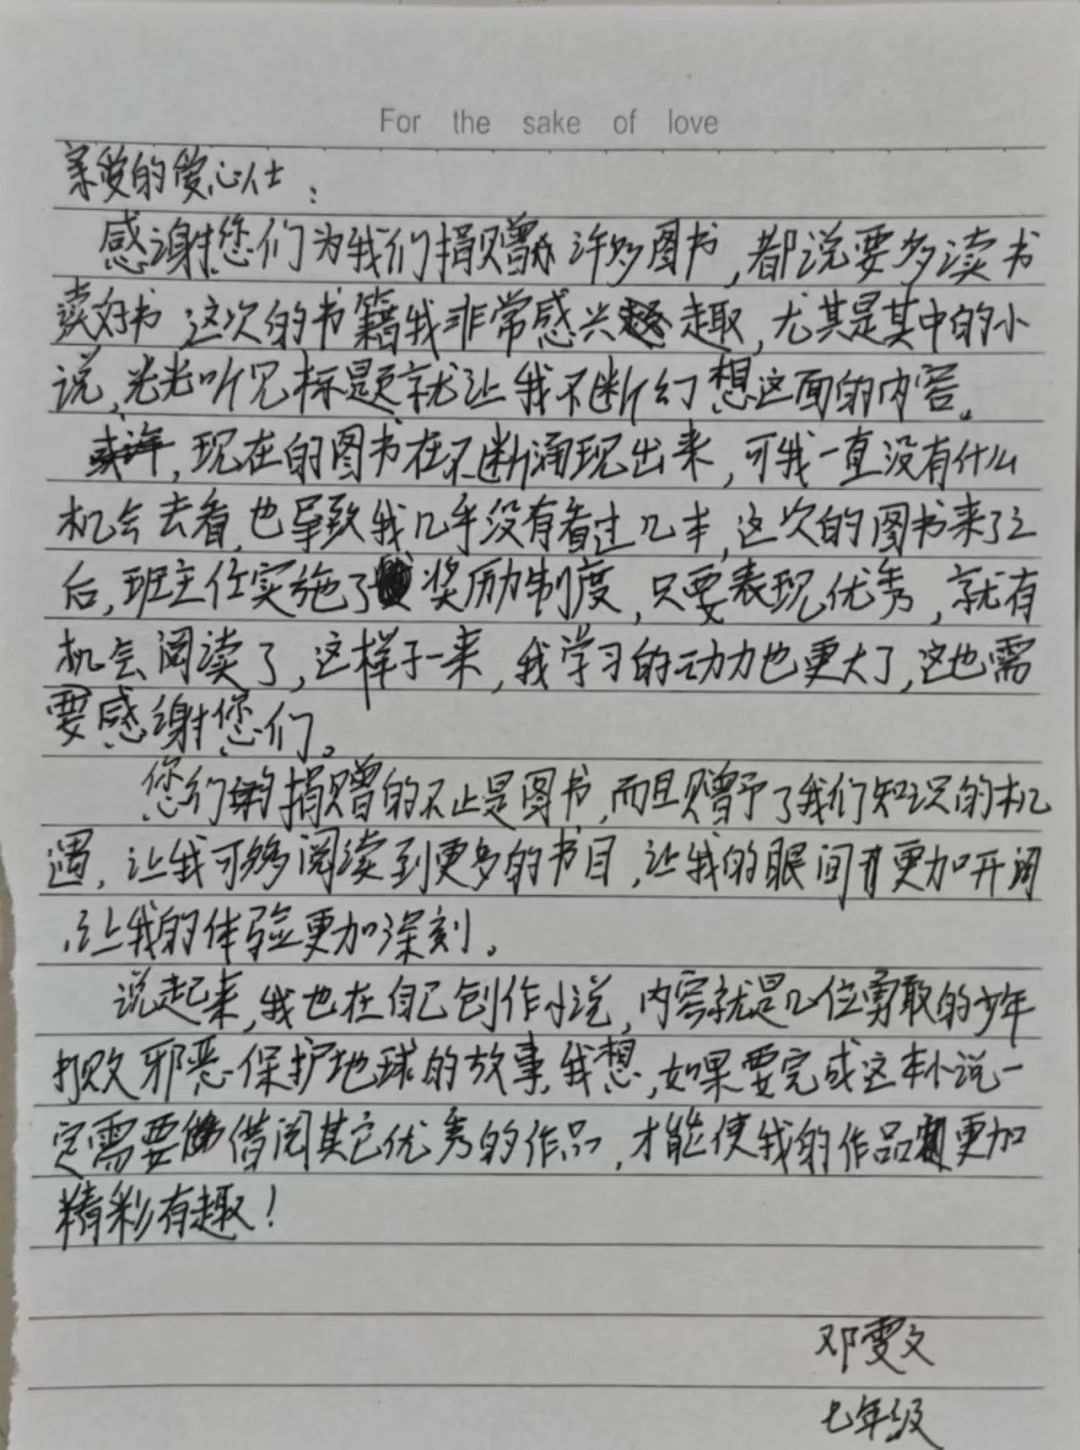 For the sake of love
亲爱的爱心人士：
感谢您们为我们捐赠许多图书，都说要多读书
读好书，这次的书籍我非常感兴趣，尤其是其中的小
说，光光听见标题就让我不断幻想这面的内容。
或许，现在的图书在不断涌现出来，可我一直没有什么
机会去看，也导致我几乎没有看过几本，这次的图书来了之
后，班主任实施了奖励制度，只要表现优秀，就有
机会阅读了，这样子一来，我学习的动力也更大了，这也需
要感谢您们。
您们捐赠的不止是图书，而且赠予了我们知识的机
遇，让我可够阅读到更多的书目，让我的眼间更加开阔
，让我的体验更加深刻。
说起来，我也在自己创作小说，内容就是几位勇敢的少年
打败邪恶保护地球的故事，我想，如果要完成这本小说一
定需要借阅其它优秀的作品，才能使我的作品更加
精彩有趣！
邓雯文
七年级